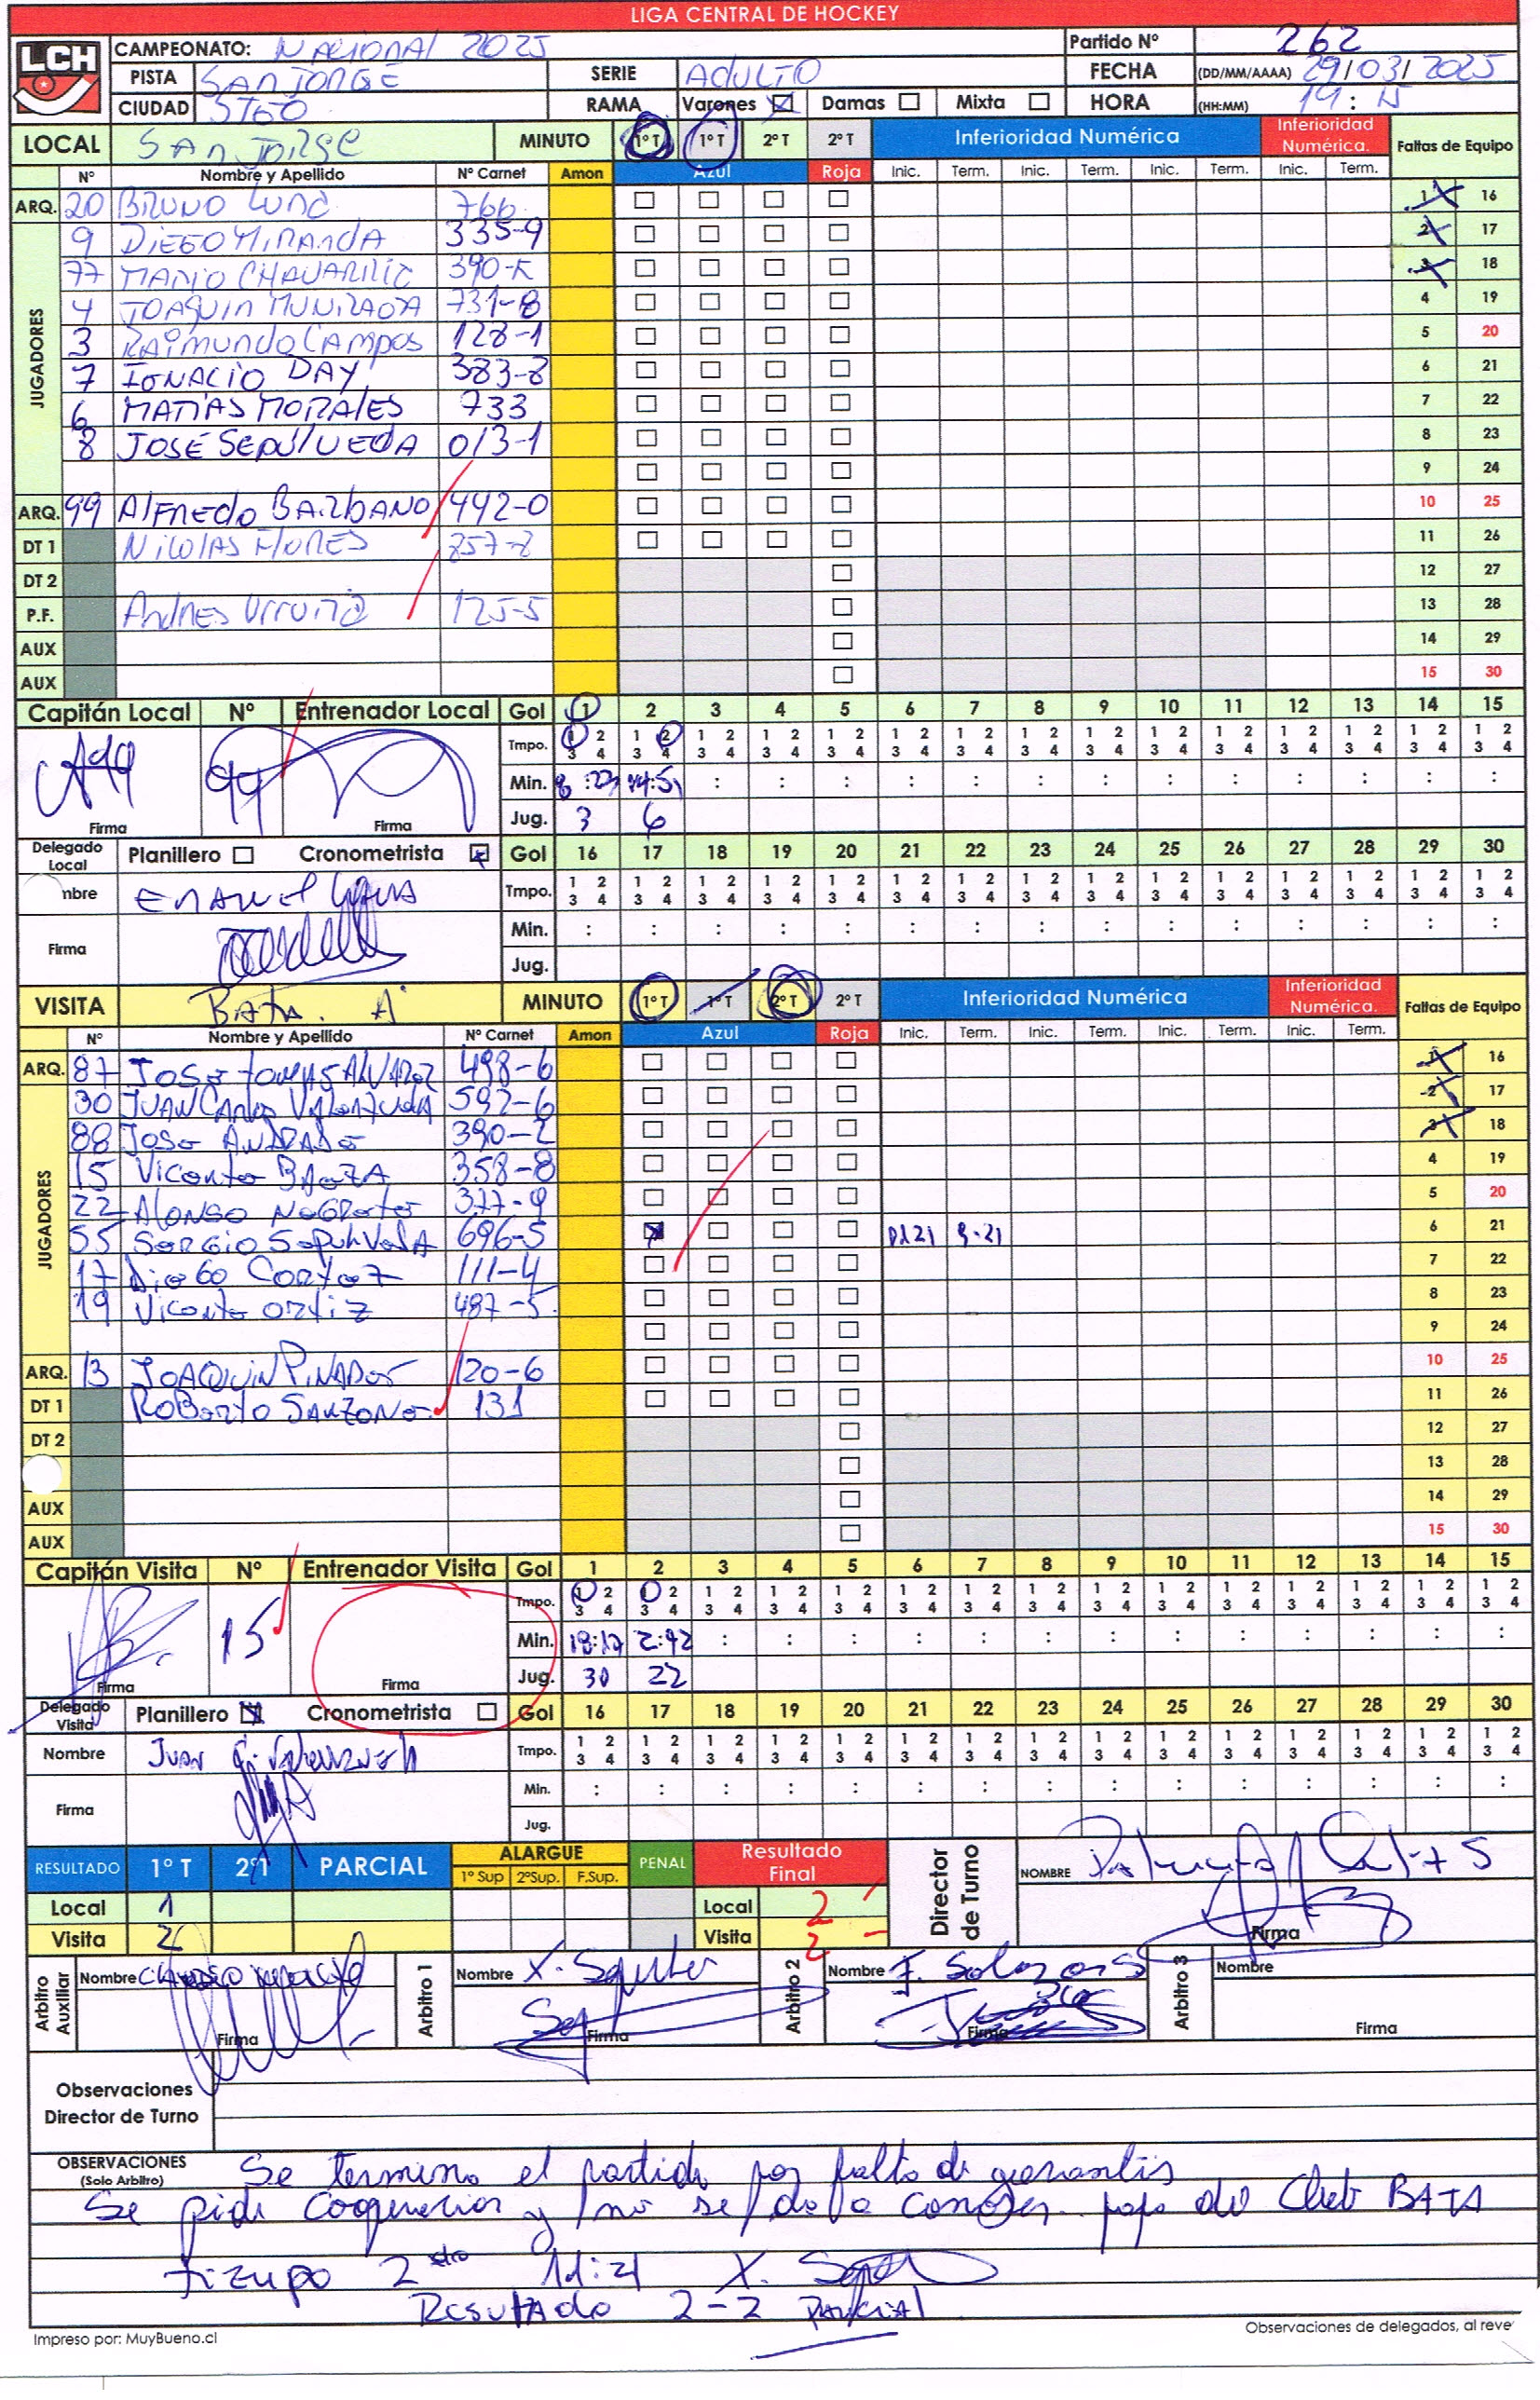 LIGA CENTRAL DE HOCKEY
LCH
CAMPEONATO: NACIONAL 2025
Partido Nº 262
PISTA SAN JORGE
SERIE ADULTO
FECHA (DD/MM/AAAA) 29/03/2025
CIUDAD STGO
RAMA Varones Damas Mixta
HORA (HH:MM) 19:15
LOCAL SAN JORGE MINUTO 1º T 1º T 2º T 2º T Inferioridad Numérica Inferioridad Numérica. Faltas de Equipo
Nº Nombre y Apellido Nº Carnet Amon Azul Roja Inic. Term. Inic. Term. Inic. Term. Inic. Term.
ARQ. 20 BRUNO LUNA 766 1 16
JUGADORES
9 DIEGO MIRANDA 335-9 2 17
77 MARIO CHAVARRIA 390-K 3 18
4 JOAQUIN MUNIZAGA 731-8 4 19
3 RAIMUNDO CAMPOS 128-1 5 20
7 IGNACIO DAY 383-8 6 21
6 MATIAS MORALES 733 7 22
8 JOSÉ SEPULVEDA 013-1 8 23
9 24
ARQ. 99 ALFREDO BARBANO 442-0 10 25
DT 1 NICOLAS FLORES 857-8 11 26
DT 2 12 27
P.F. ANDRES URRUTIA 125-5 13 28
AUX 14 29
AUX 15 30
Capitán Local Nº Entrenador Local Gol 1 2 3 4 5 6 7 8 9 10 11 12 13 14 15
Tmpo. 1 2 3 4 1 2 3 4 1 2 3 4 1 2 3 4 1 2 3 4 1 2 3 4 1 2 3 4 1 2 3 4 1 2 3 4 1 2 3 4 1 2 3 4 1 2 3 4 1 2 3 4 1 2 3 4 1 2 3 4
99
Min. 8:23 14:51 : : : : : : : : : : : : :
Firma Firma Jug. 3 6
Delegado Local Planillero Cronometrista Gol 16 17 18 19 20 21 22 23 24 25 26 27 28 29 30
mbre Tmpo. 1 2 3 4 1 2 3 4 1 2 3 4 1 2 3 4 1 2 3 4 1 2 3 4 1 2 3 4 1 2 3 4 1 2 3 4 1 2 3 4 1 2 3 4 1 2 3 4 1 2 3 4 1 2 3 4 1 2 3 4
Firma Min. : : : : : : : : : : : : : : :
Jug.
VISITA BATA A MINUTO 1º T 1º T 2º T 2º T Inferioridad Numérica Inferioridad Numérica. Faltas de Equipo
Nº Nombre y Apellido Nº Carnet Amon Azul Roja Inic. Term. Inic. Term. Inic. Term. Inic. Term.
ARQ. 87 JOSE TOMAS ALVAREZ 498-6 1 16
JUGADORES
30 JUAN CARLOS VALENZUELA 592-6 2 17
88 JOSE ANDRADE 390-2 3 18
15 VICENTE BAEZA 358-8 4 19
22 ALONSO NEGRETE 377-9 5 20
55 SERGIO SEPULVEDA 696-5 9:21 6 21
17 DIEGO CORTEZ 111-4 7 22
19 VICENTE ORTIZ 487-5 8 23
9 24
ARQ. 13 JOAQUIN PINADES 120-6 10 25
DT 1 ROBERTO SANZONE 131 11 26
DT 2 12 27
13 28
AUX 14 29
AUX 15 30
Capitán Visita Nº Entrenador Visita Gol 1 2 3 4 5 6 7 8 9 10 11 12 13 14 15
Tmpo. 1 2 3 4 1 2 3 4 1 2 3 4 1 2 3 4 1 2 3 4 1 2 3 4 1 2 3 4 1 2 3 4 1 2 3 4 1 2 3 4 1 2 3 4 1 2 3 4 1 2 3 4 1 2 3 4 1 2 3 4
15
Min. 18:17 2:42 : : : : : : : : : : : : :
Firma Firma Jug. 30 22
Delegado Visita Planillero Cronometrista Gol 16 17 18 19 20 21 22 23 24 25 26 27 28 29 30
Nombre JUAN C. Valenzuela Tmpo. 1 2 3 4 1 2 3 4 1 2 3 4 1 2 3 4 1 2 3 4 1 2 3 4 1 2 3 4 1 2 3 4 1 2 3 4 1 2 3 4 1 2 3 4 1 2 3 4 1 2 3 4 1 2 3 4 1 2 3 4
Firma Min. : : : : : : : : : : : : : : :
Jug.
RESULTADO 1º T 2ºT PARCIAL ALARGUE PENAL Resultado Final Director de Turno NOMBRE
1º Sup 2ºSup. F.Sup.
Local 1 Local 2
Visita 2 Visita 2 Firma
Arbitro Auxiliar Nombre Arbitro 1 Nombre X. Arbitro 2 Nombre F. Arbitro 3 Nombre
Firma Firma Firma Firma
Observaciones
Director de Turno
OBSERVACIONES Se termino el partido por falta de garantis
(Solo Arbitro)
Se pide Cooperacion y no se da a conoser papa del Club BATA
tiempo 2 11:21 X.
Resultado 2-2 PARCIAL
Impreso por: MuyBueno.cl
Observaciones de delegados, al reve